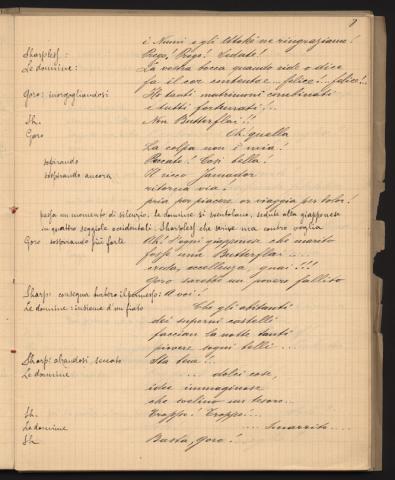 8
i Numi e gli Otokè ne ringraziamo!
Sharpless: Prego! Prego! Sedute!
Le donnine: La vostra bocca quando ride o dice
fa il cor contento e... felice!... felice!..
Goro: inorgogliendosi Ho tanti matrimoni combinati
e tutti fortunati!..
Sh. Non Butterfly!!
Goro Oh! quella
La colpa non è mia!
sospirando Peccato! Così bella!
sospirando ancora Il ricco Yamador
ritorna via.
pria per piacere or viaggia per dolor!
passa un momento di silenzio. le donnine si sventolano, sedute alla giapponese
in quattro seggiole occidentali. Sharpless che scrive una contro voglia
Goro sospirando più forte Ah! S'ogni giapponese che marito
fosse una Butterfly ....
creda, eccellenza, guai!!!
Goro sarebbe un povero fallito
Sharp: consegna A voi!
Le donnine: insieme d'un fiato Che gli abitanti
dei superni castelli
faccian la notte tanti
piovere sogni belli ...
Sharp: alzandosi, seccato Sta bene!...
Le donnine ... dolci cose,
idee immaginose
che svelino un tesoro..
Sh. Troppo! Troppo!..
La donnina .... smarrito ....
Sh Basta, Goro!